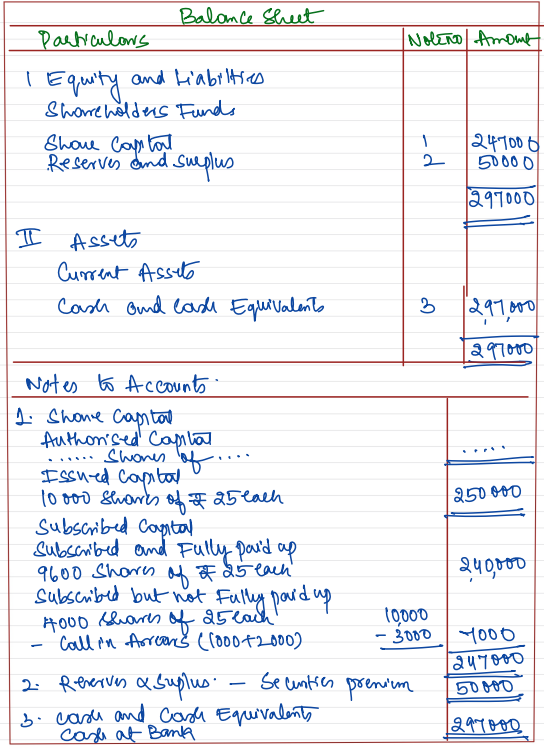 Balance Sheet
Particulars Note No Amount
I Equity and Liabilities
Shareholders Funds
Share Capital 1 247000
Reserves and Surplus 2 50000
297000
II Assets
Current Assets
Cash and Cash Equivalents 3 297,000
297000
Notes to Accounts.
1. Share Capital
Authorised Capital
...... Shares of .... .....
Issued Capital
10000 Shares of ₹ 25 each 250000
Subscribed Capital
Subscribed and Fully paid up
9600 Shares of ₹ 25 each 240,000
Subscribed but not Fully paid up
4000 Shares of 25 each 10,000
- Call in Arrears (1000+2000) - 3000 7000
247000
2. Reserves & Suplus. - Securities premium 50000
3. Cash and Cash Equivalents
Cash at Bank 297000